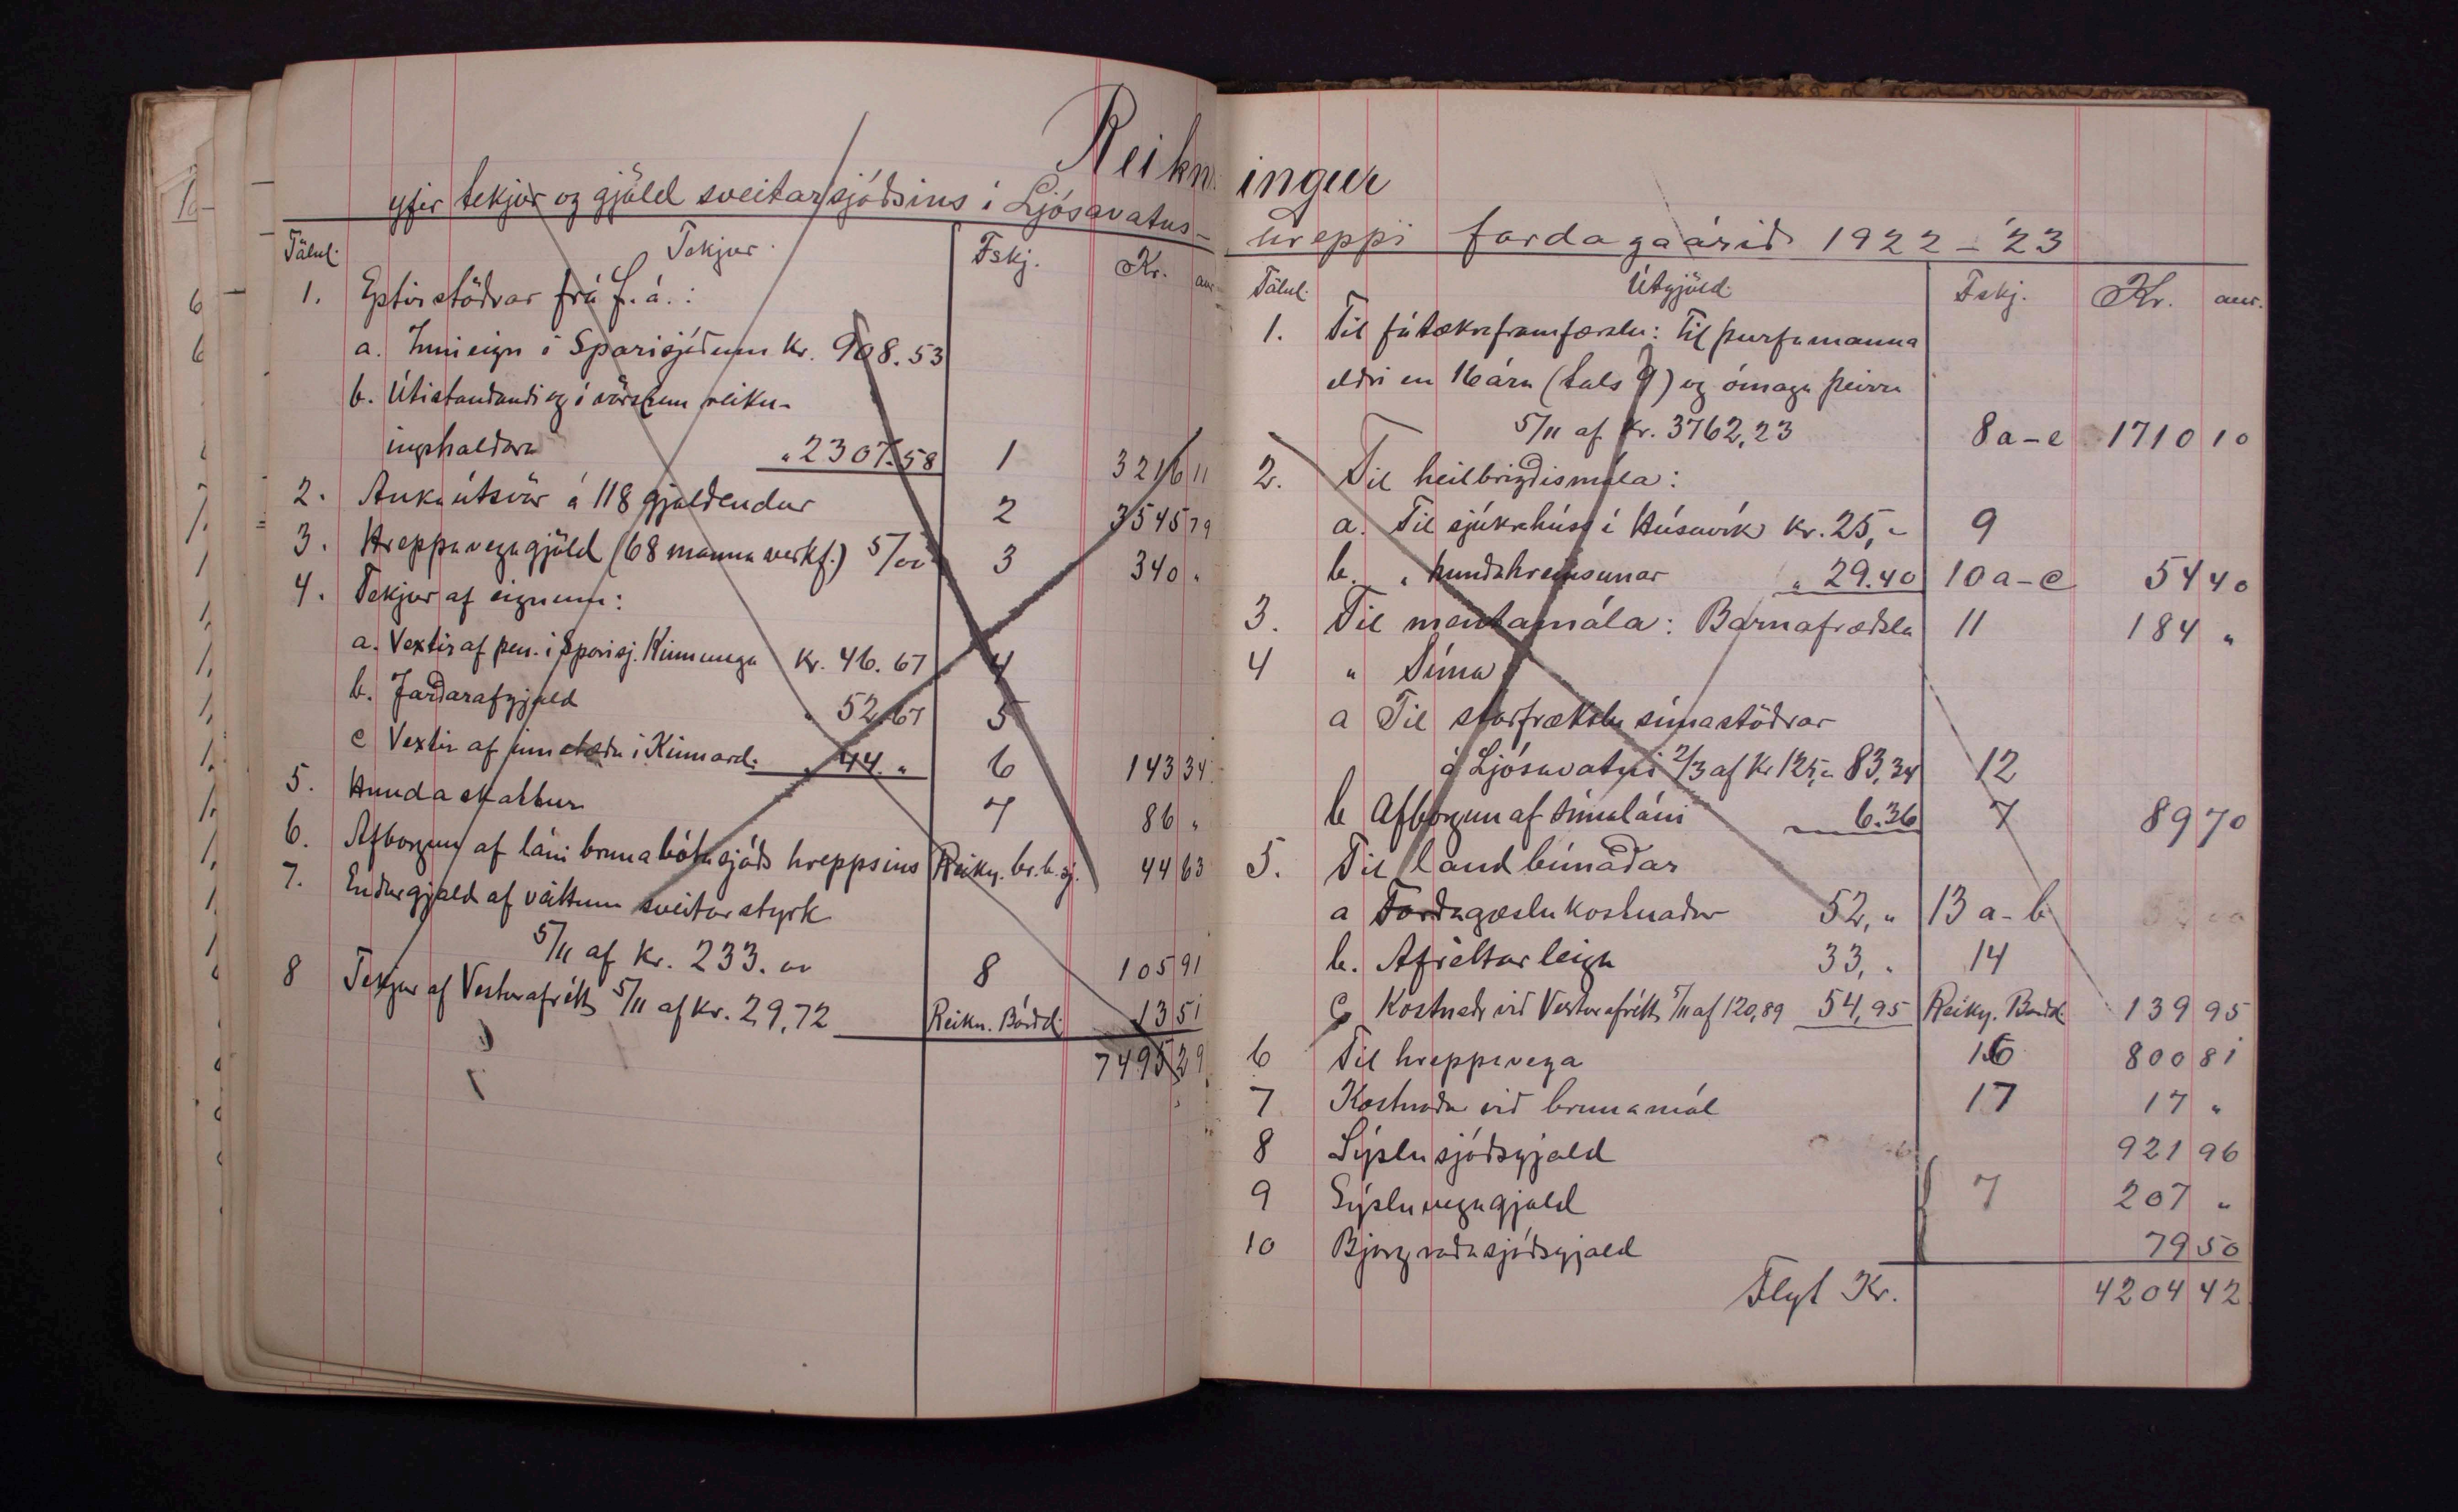 Reikn
yfir tekjur og gjöld sveitarsjóðsins í Ljósavatns-
Tölul. Tekjur. Fskj. Kr. aur
1. Eptirstöðvar frá f. á.:
a. Inneign í Sparisjóðum kr. 908.53
b. Útistandandi og í vörslum reikn-
ingshaldara " 2307.58 1 3216 11
2. Aukaútsvör á 118 gjaldendur 2 3545 79
3. Hreppavegagjöld (68 manna verkf.) 5/00 3 340 "
4. Tekjur af eignum:
a. Vextir af pen. í Sparisj. Kinnunga kr. 46.67 4
b. Jarðarafgjald " 52.67 5
c Vextir af innstæðu í Kinnard. " 44. " 6 143 34
5. Hundaskattur 7 86 "
6. Afborgun af láni brunabótasjóðs hreppsins Reikn. br.b.sj. 44 63
7. Endurgjald af veittum sveitarstyrk
5/11 af kr. 233.00 8 105 91
8 Tekjur af Vesturafrétt 5/11 af kr. 29,72 Reikn. Bárðd. 13 51
7495 29
ingur
hreppi fardagaárið 1922-'23
Tölul. Útgjöld Fskj. Kr. aur.
1. Til fátækraframfærslu: Til þurfamanna
eldri en 16 ára (tals 9) og ómaga þeirra
5/11 af kr. 3762,23 8a-e 1710 10
2. Til heilbrigdismála:
a. Til sjúkrahúss í Húsavík kr. 25,- 9
b. " hundahreinsunar " 29.40 10a-c 54 40
3. Til mentamála: Barnafræðsla 11 184 "
4 " Síma
a Til starfrækslu símastöðvar
á Ljósavatni 2/3 af kr 125,- 83,34 12
b Afborgun af símaláni 6.36 7 89 70
5. Til landbúnaðar
a Forðagæslukostnaður 52, " 13 a-b
b. Afréttarleiga 33, " 14
c Kostnaðr við Vesturafrétt 5/11 af 120,89 54,95 Reikn. Bárðd. 139 95
6 Til hreppavega 16 800 81
7 Kostnaður við brunamál 17 17 "
8 Sýslusjóðsgjald 921 96
9 Sýsluvegagjald 7 207 "
10 Bjargráðasjóðsgjald 79 50
Flyt Kr. 4204 42